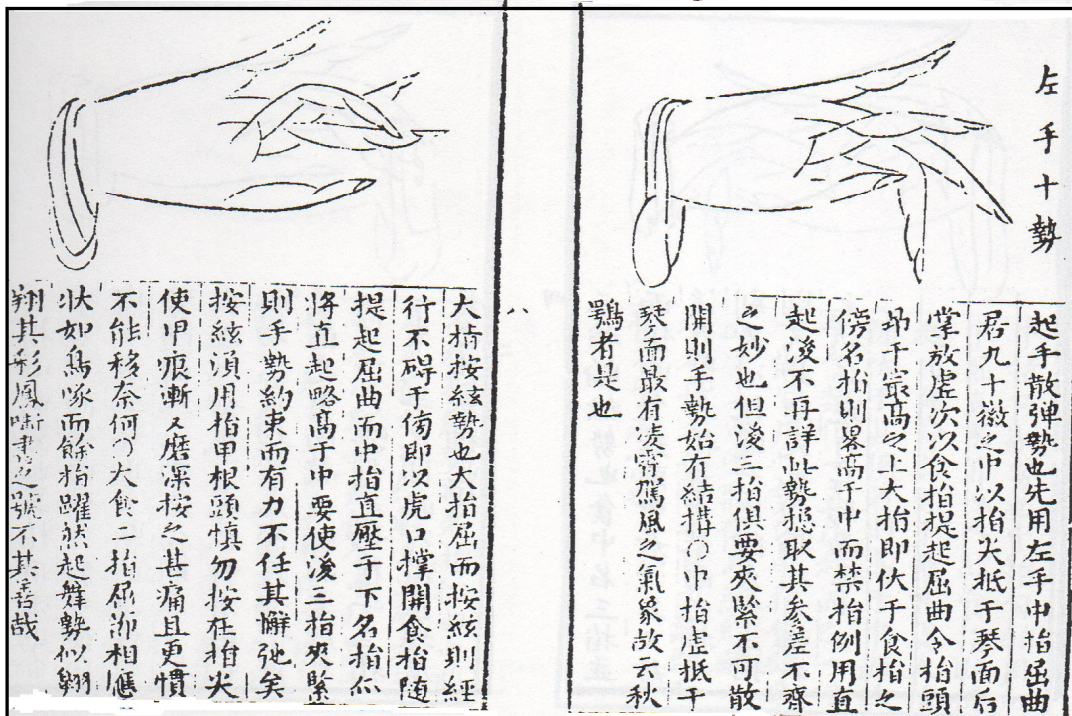 左手十勢
起手散弹勢也先用左手中指屈曲
君九十徽之中以指尖抵于琴面后
掌放虛次以食指提起屈曲令指頭
昂于最高之上大指即伏于食指之
傍名指則畧高于中而禁指例用直
起後不再詳此勢揔取其参差不齊
之妙也但後三指俱要夾緊不可散
開則手勢始有結搆〇中指虛抵于
琴面最有凌霄駕風之氣象故云秋
鶚者是也
八
大指按絃勢也大指屈而按絃則經
行不碍于傍即以虎口撑開食指随
提起屈曲而中指直壓于下名指亦
將直起略高于中要使後三指夾緊
則手勢約束而有力不任其懈弛矣
按絃須用指甲根頭慎勿按在指尖
使甲痕漸久磨深按之甚痛且更慣
不能移奈何〇大食二指屈伸相應
状如鳥啄而餘指躍然起舞勢似翱
翔其彩鳳啣書之號不其善哉